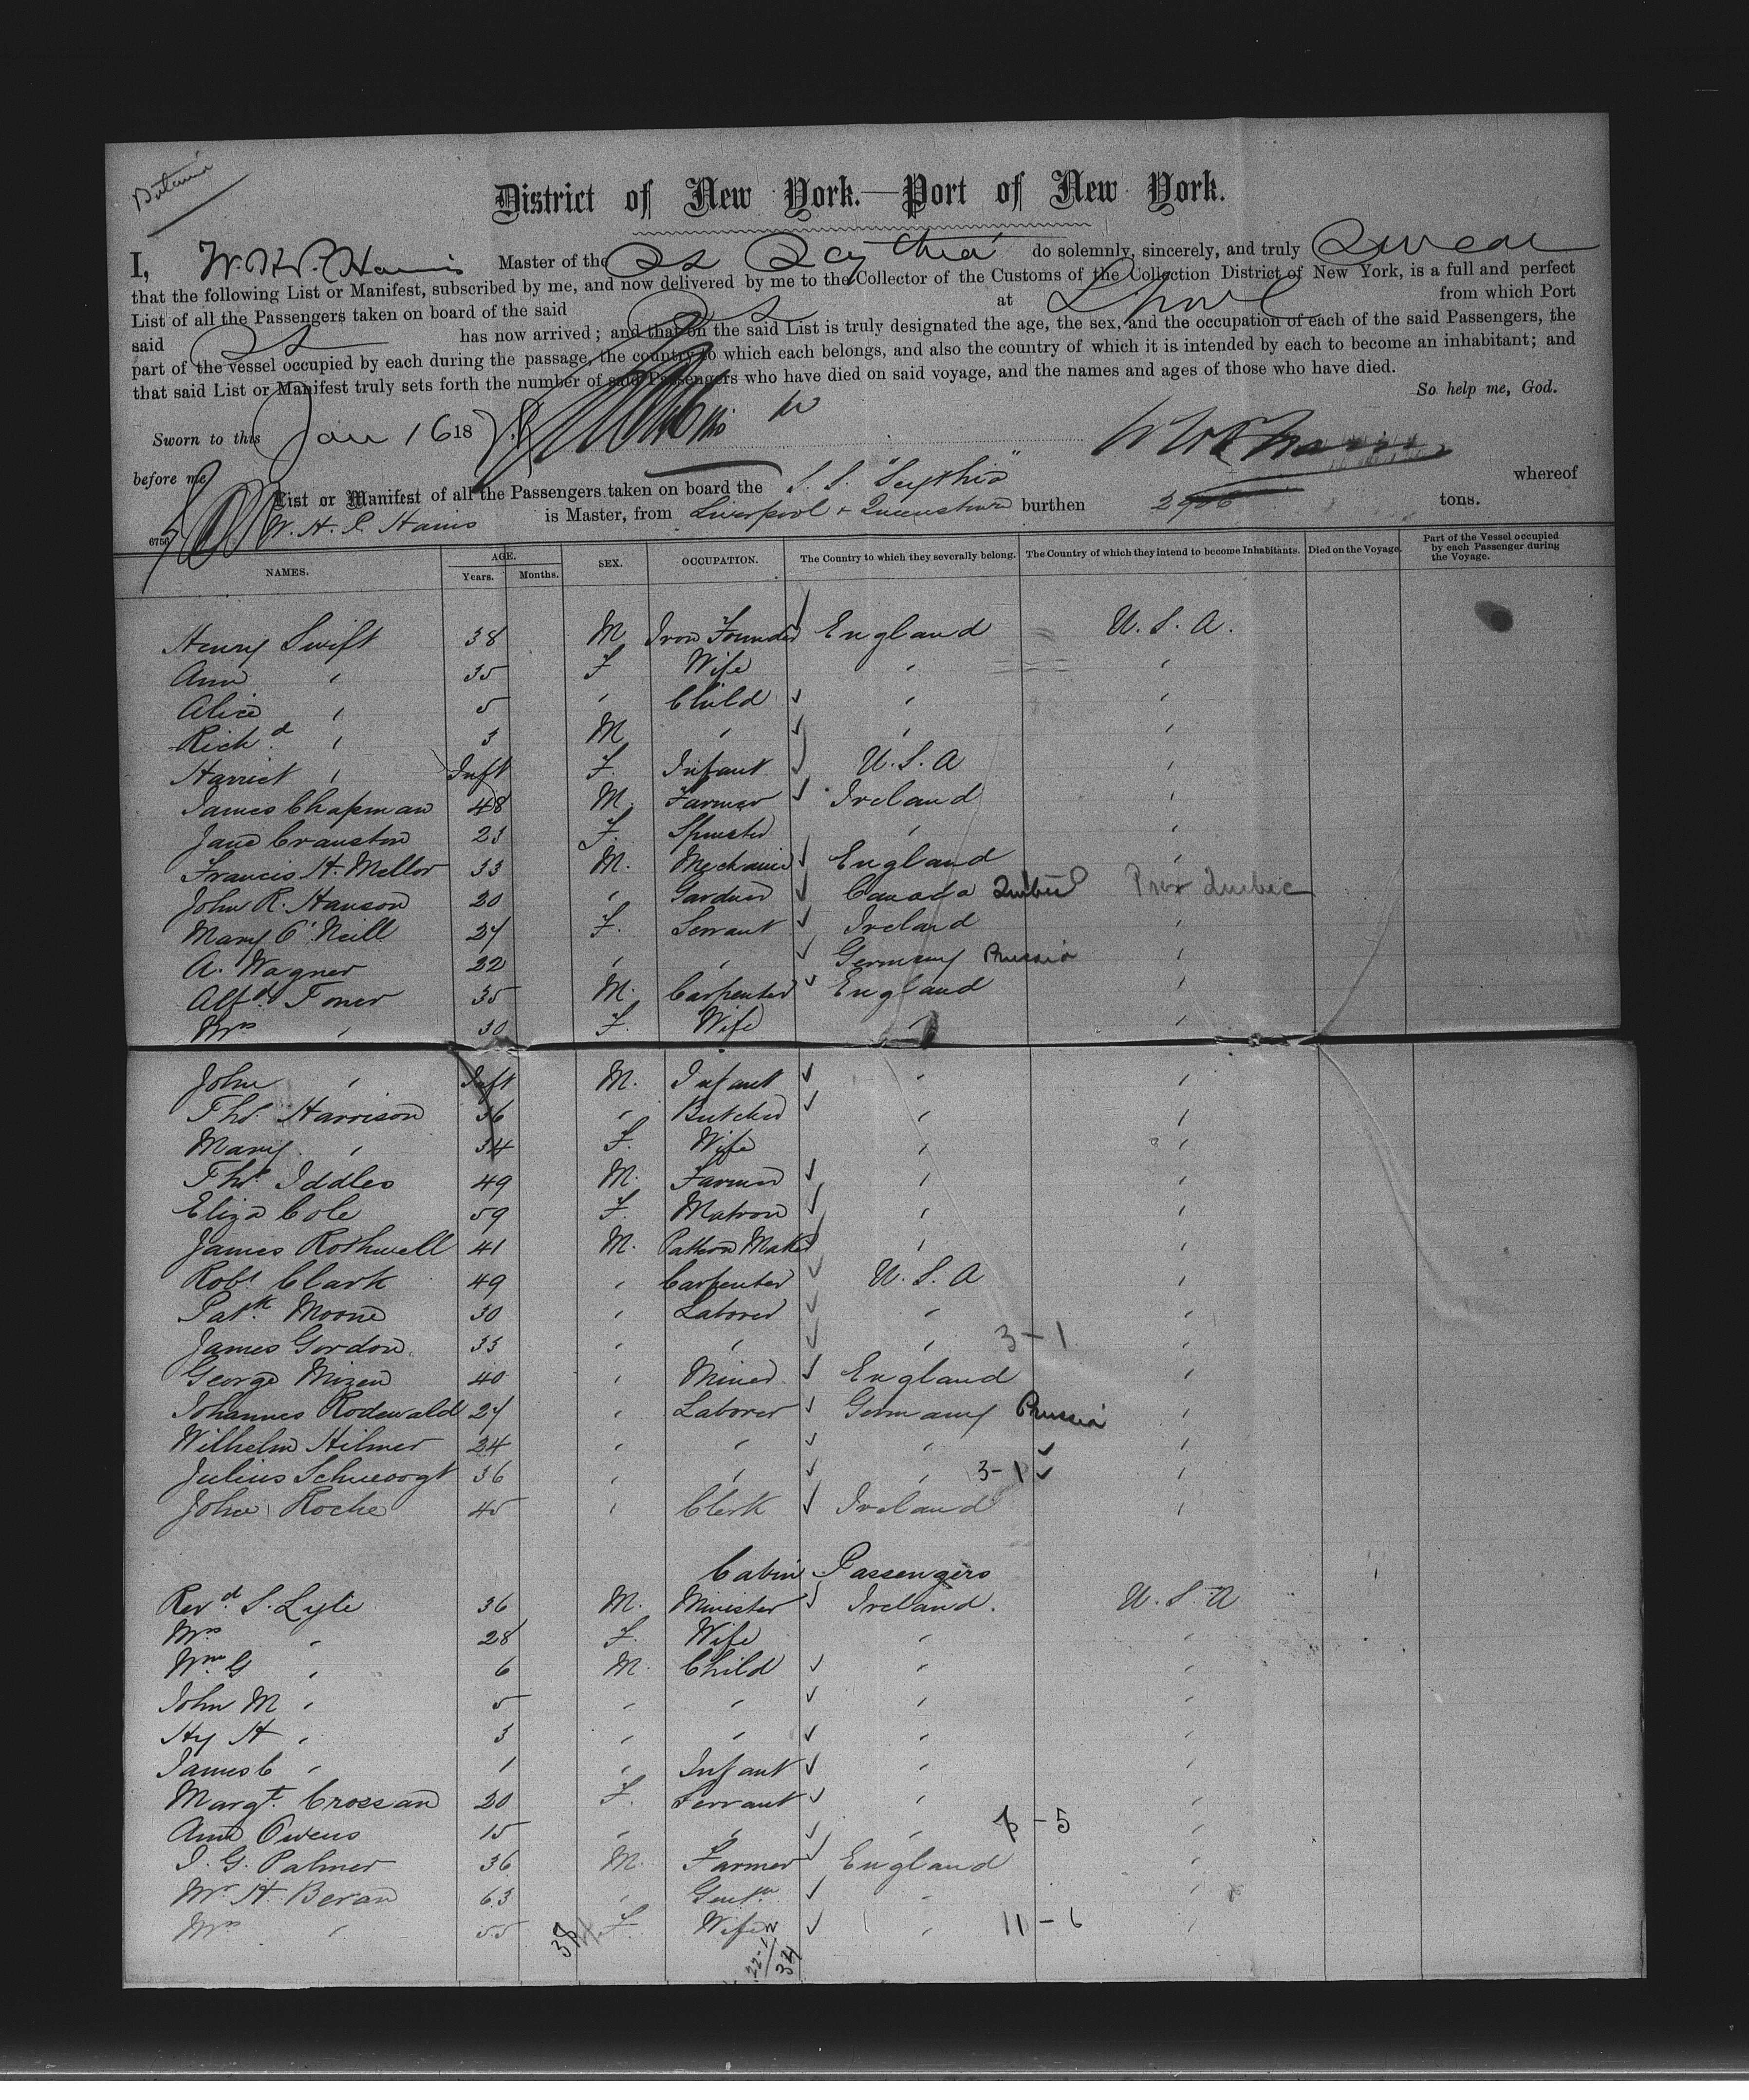 District of New York.—Port of New York.
I, W. H. P. Hains Master of the SS Scythia do solemnly, sincerely, and truly Swear
that the following List or Manifest, subscribed by me, and now delivered by me to the Collector of the Customs of the Collection District of New York, is a full and perfect
List of all the Passengers taken on board of the said SS at L'pool from which Port
said SS has now arrived; and that on the said List is truly designated the age, the sex, and the occupation of each of the said Passengers, the
part of the vessel occupied by each during the passage, the country to which each belongs, and also the country of which it is intended by each to become an inhabitant; and
that said List or Manifest truly sets forth the number of said Passengers who have died on said voyage, and the names and ages of those who have died.
So help me, God.
Sworn to this Jan 16 18
before me
List or Manifest of all the Passengers taken on board the S. S. "Scythia" whereof
W. H. P. Hains is Master, from Liverpool + Queenstown burthen 2906 tons.
6756
NAMES. AGE. Years. Months. SEX. OCCUPATION. The Country to which they severally belong. The Country of which they intend to become Inhabitants. Died on the Voyage. Part of the Vessel occupied by each Passenger during the Voyage.
Henry Swift 38 M Iron Founder England U. S. A.
Ann " 35 F Wife " "
Alice " 5 " Child " "
Richd. " 3 M " " "
Harriet " Inft F. Infant U. S. A "
James Chapman 48 M. Farmer Ireland "
Jane Cranston 23 F. Spinster " "
Francis H. Mellor 33 M. Mechanic England "
John R. Hanson 20 " Gardner Canada Quebec Prov Quebec
Mary O'Neill 27 F. Servant Ireland "
A. Wagner 22 " " Germany Prussia "
Alfd. Toner 35 M. Carpenter England "
Mrs " 30 F. Wife " "
John " Inft M. Infant " "
Thos. Harrison 36 " Butcher " "
Mary " 34 F. Wife " "
Thos. Iddles 49 M. Farmer " "
Eliza Cole 59 F. Matron " "
James Rothwell 41 M. Pattern Maker " "
Robt Clark 49 " Carpenter U. S. A "
Patk. Moone 30 " Laborer " "
James Gordon 33 " " " 3-1 "
George Mizen 40 " Miner England "
Johannes Rodewald 27 " Laborer Germany Prussia "
Wilhelm Hilmer 24 " " " "
Julius 36 " " " 3-1 "
John Roche 45 " Clerk Ireland "
Cabin Passengers
Revd. S. Lyle 36 M. Minister Ireland. U. S. A
Mrs " 28 F. Wife " "
Wm. G " 6 M. Child " "
John M " 5 " " " "
Hy H " 3 " " " "
James C " 1 " Infant " "
Margt. Crossan 20 F. Servant " "
Ann Owens 15 " " " - 5 "
J. G. Palmer 36 M. Farmer England "
Mr H. Bevan 63 " Gentn " "
Mrs " 55 F. Wife " 11 - 6 "
34